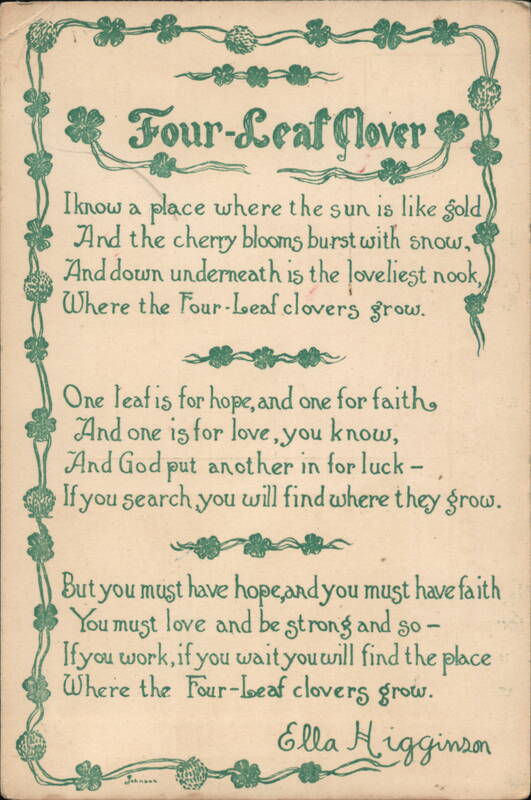 Four-Leaf Clover
I know a place where the sun is like gold
And the cherry blooms burst with snow,
And down underneath is the loveliest nook,
Where the Four-Leaf clovers grow.
One leaf is for hope, and one for faith,
And one is for love, you know,
And God put another in for luck –
If you search, you will find where they grow.
But you must have hope, and you must have faith
You must love and be strong and so –
If you work, if you wait you will find the place
Where the Four-Leaf clovers grow.
Ella Higginson
Johnson